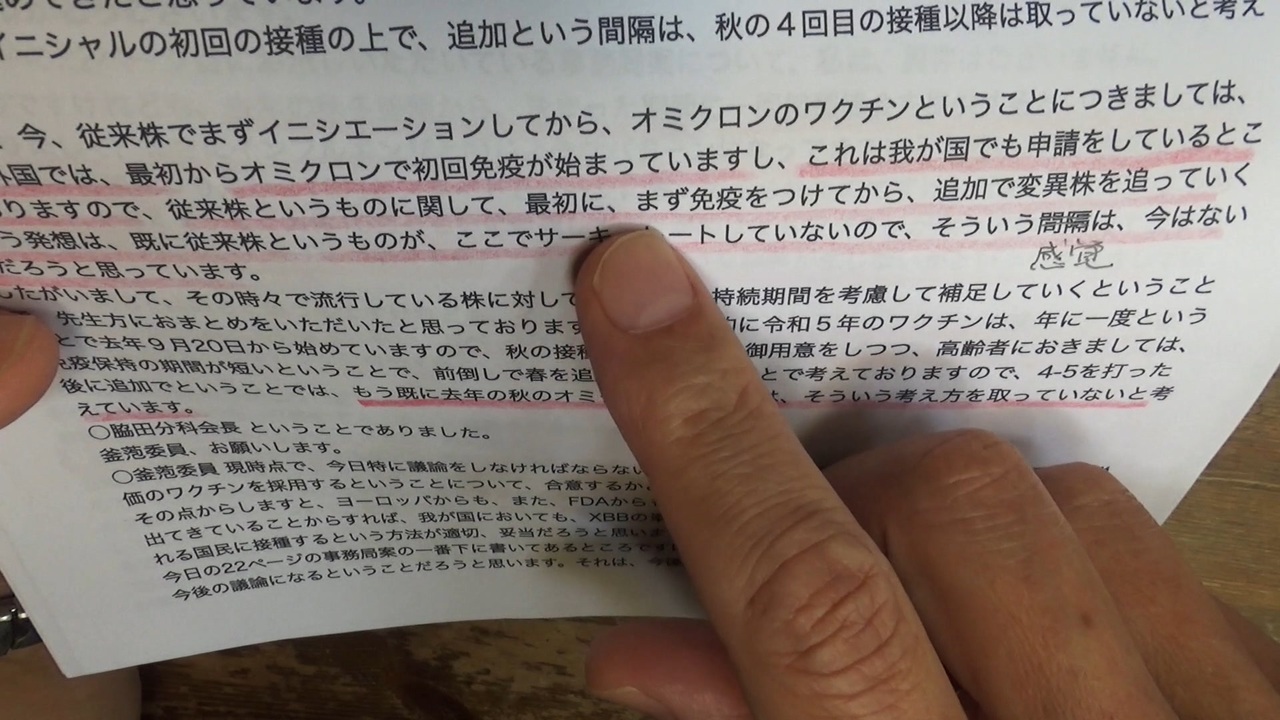 めてきたと思っています。
イニシャルの初回の接種の上で、追加という間隔は、秋の4回目の接種以降は取っていないと考え
今、従来株でまずイニシエーションしてから、オミクロンのワクチンということにつきましては、
外国では、最初からオミクロンで初回免疫が始まっていますし、これは我が国でも申請をしているとこ
りますので、従来株というものに関して、最初に、まず免疫をつけてから、追加で変異株を追っていく
う発想は、既に従来株というものが、ここでサーキ ートしていないので、そういう間隔は、今はない
感覚
だろうと思っています。
したがいまして、その時々で流行している株に対して 持続期間を考慮して補足していくということ
先生方におまとめをいただいたと思っております 的に令和5年のワクチンは、年に一度という
とで去年9月20日から始めていますので、秋の接種 御用意をしつつ、高齢者におきましては、
免疫保持の期間が短いということで、前倒しで春を追 とで考えておりますので、4-5を打った
後に追加でということでは、もう既に去年の秋のオミ は、そういう考え方を取っていないと考
えています。
○脇田分科会長 ということでありました。
釜萢委員、お願いします。
○釜萢委員 現時点で、今日特に議論をしなければならない
価のワクチンを採用するということについて、合意するか
その点からしますと、ヨーロッパからも、また、FDAから
出てきていることからすれば、我が国においても、XBBの単
れる国民に接種するという方法が適切、妥当だろうと思いま
今日の22ページの事務局案の一番下に書いてあるところです
今後の議論になるということだろうと思います。それは、今後